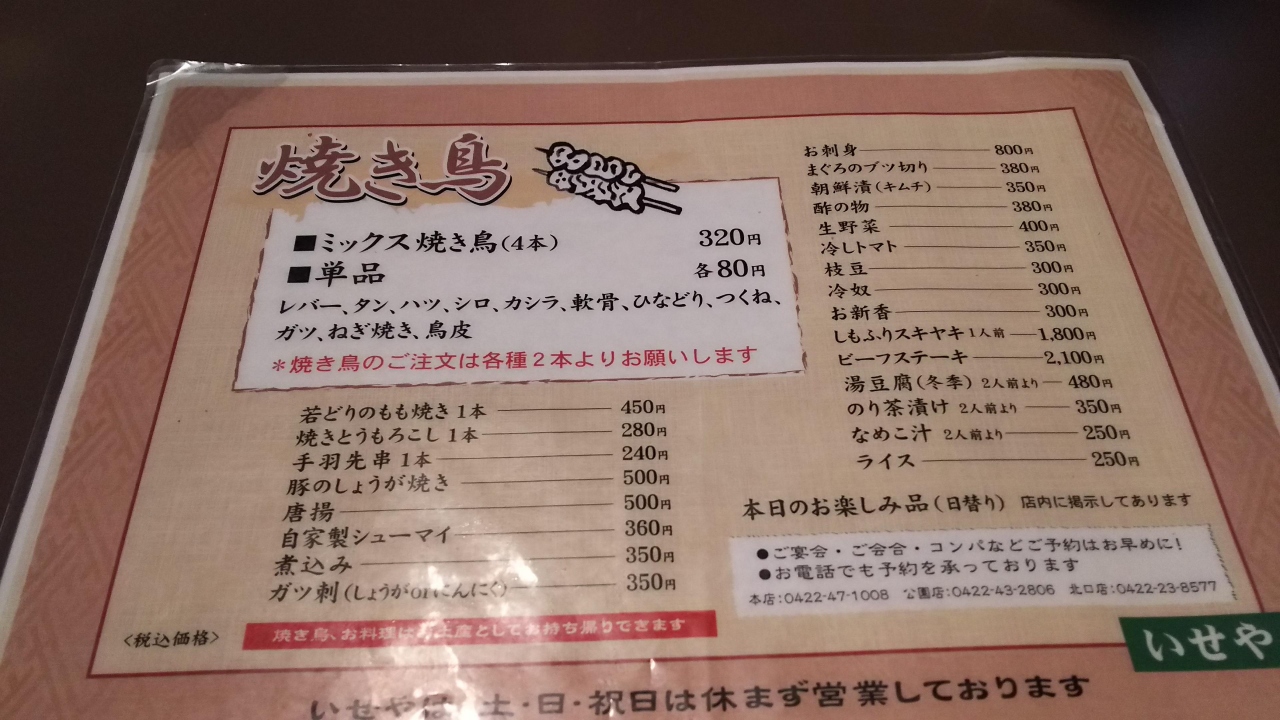 焼き鳥
■ミックス焼き鳥(4本) 320円
■単品 各80円
レバー、タン、ハツ、シロ、カシラ、軟骨、ひなどり、つくね、
ガツ、ねぎ焼き、鳥皮
*焼き鳥のご注文は各種2本よりお願いします
若どりのもも焼き1本 450円
焼きとうもろこし1本 280円
手羽先串1本 240円
豚のしょうが焼き 500円
唐揚 500円
自家製シューマイ 360円
煮込み 350円
ガツ刺(しょうがorにんにく) 350円
<税込価格>
焼き鳥、お料理はお土産としてお持ち帰りできます
お刺身 800円
まぐろのブツ切り 380円
朝鮮漬(キムチ) 350円
酢の物 380円
生野菜 400円
冷しトマト 350円
枝豆 300円
冷奴 300円
お新香 300円
しもふりスキヤキ1人前 1,800円
ビーフステーキ 2,100円
湯豆腐(冬季) 2人前より 480円
のり茶漬け 2人前より 350円
なめこ汁 2人前より 250円
ライス 250円
本日のお楽しみ品(日替り) 店内に掲示してあります
●ご宴会・ご会合・コンパなどご予約はお早めに!
●お電話でも予約を承っております
本店:0422-47-1008 公園店:0422-43-2806 北口店:0422-23-8577
いせや
いせやは 土・日・祝日は休まず営業しております